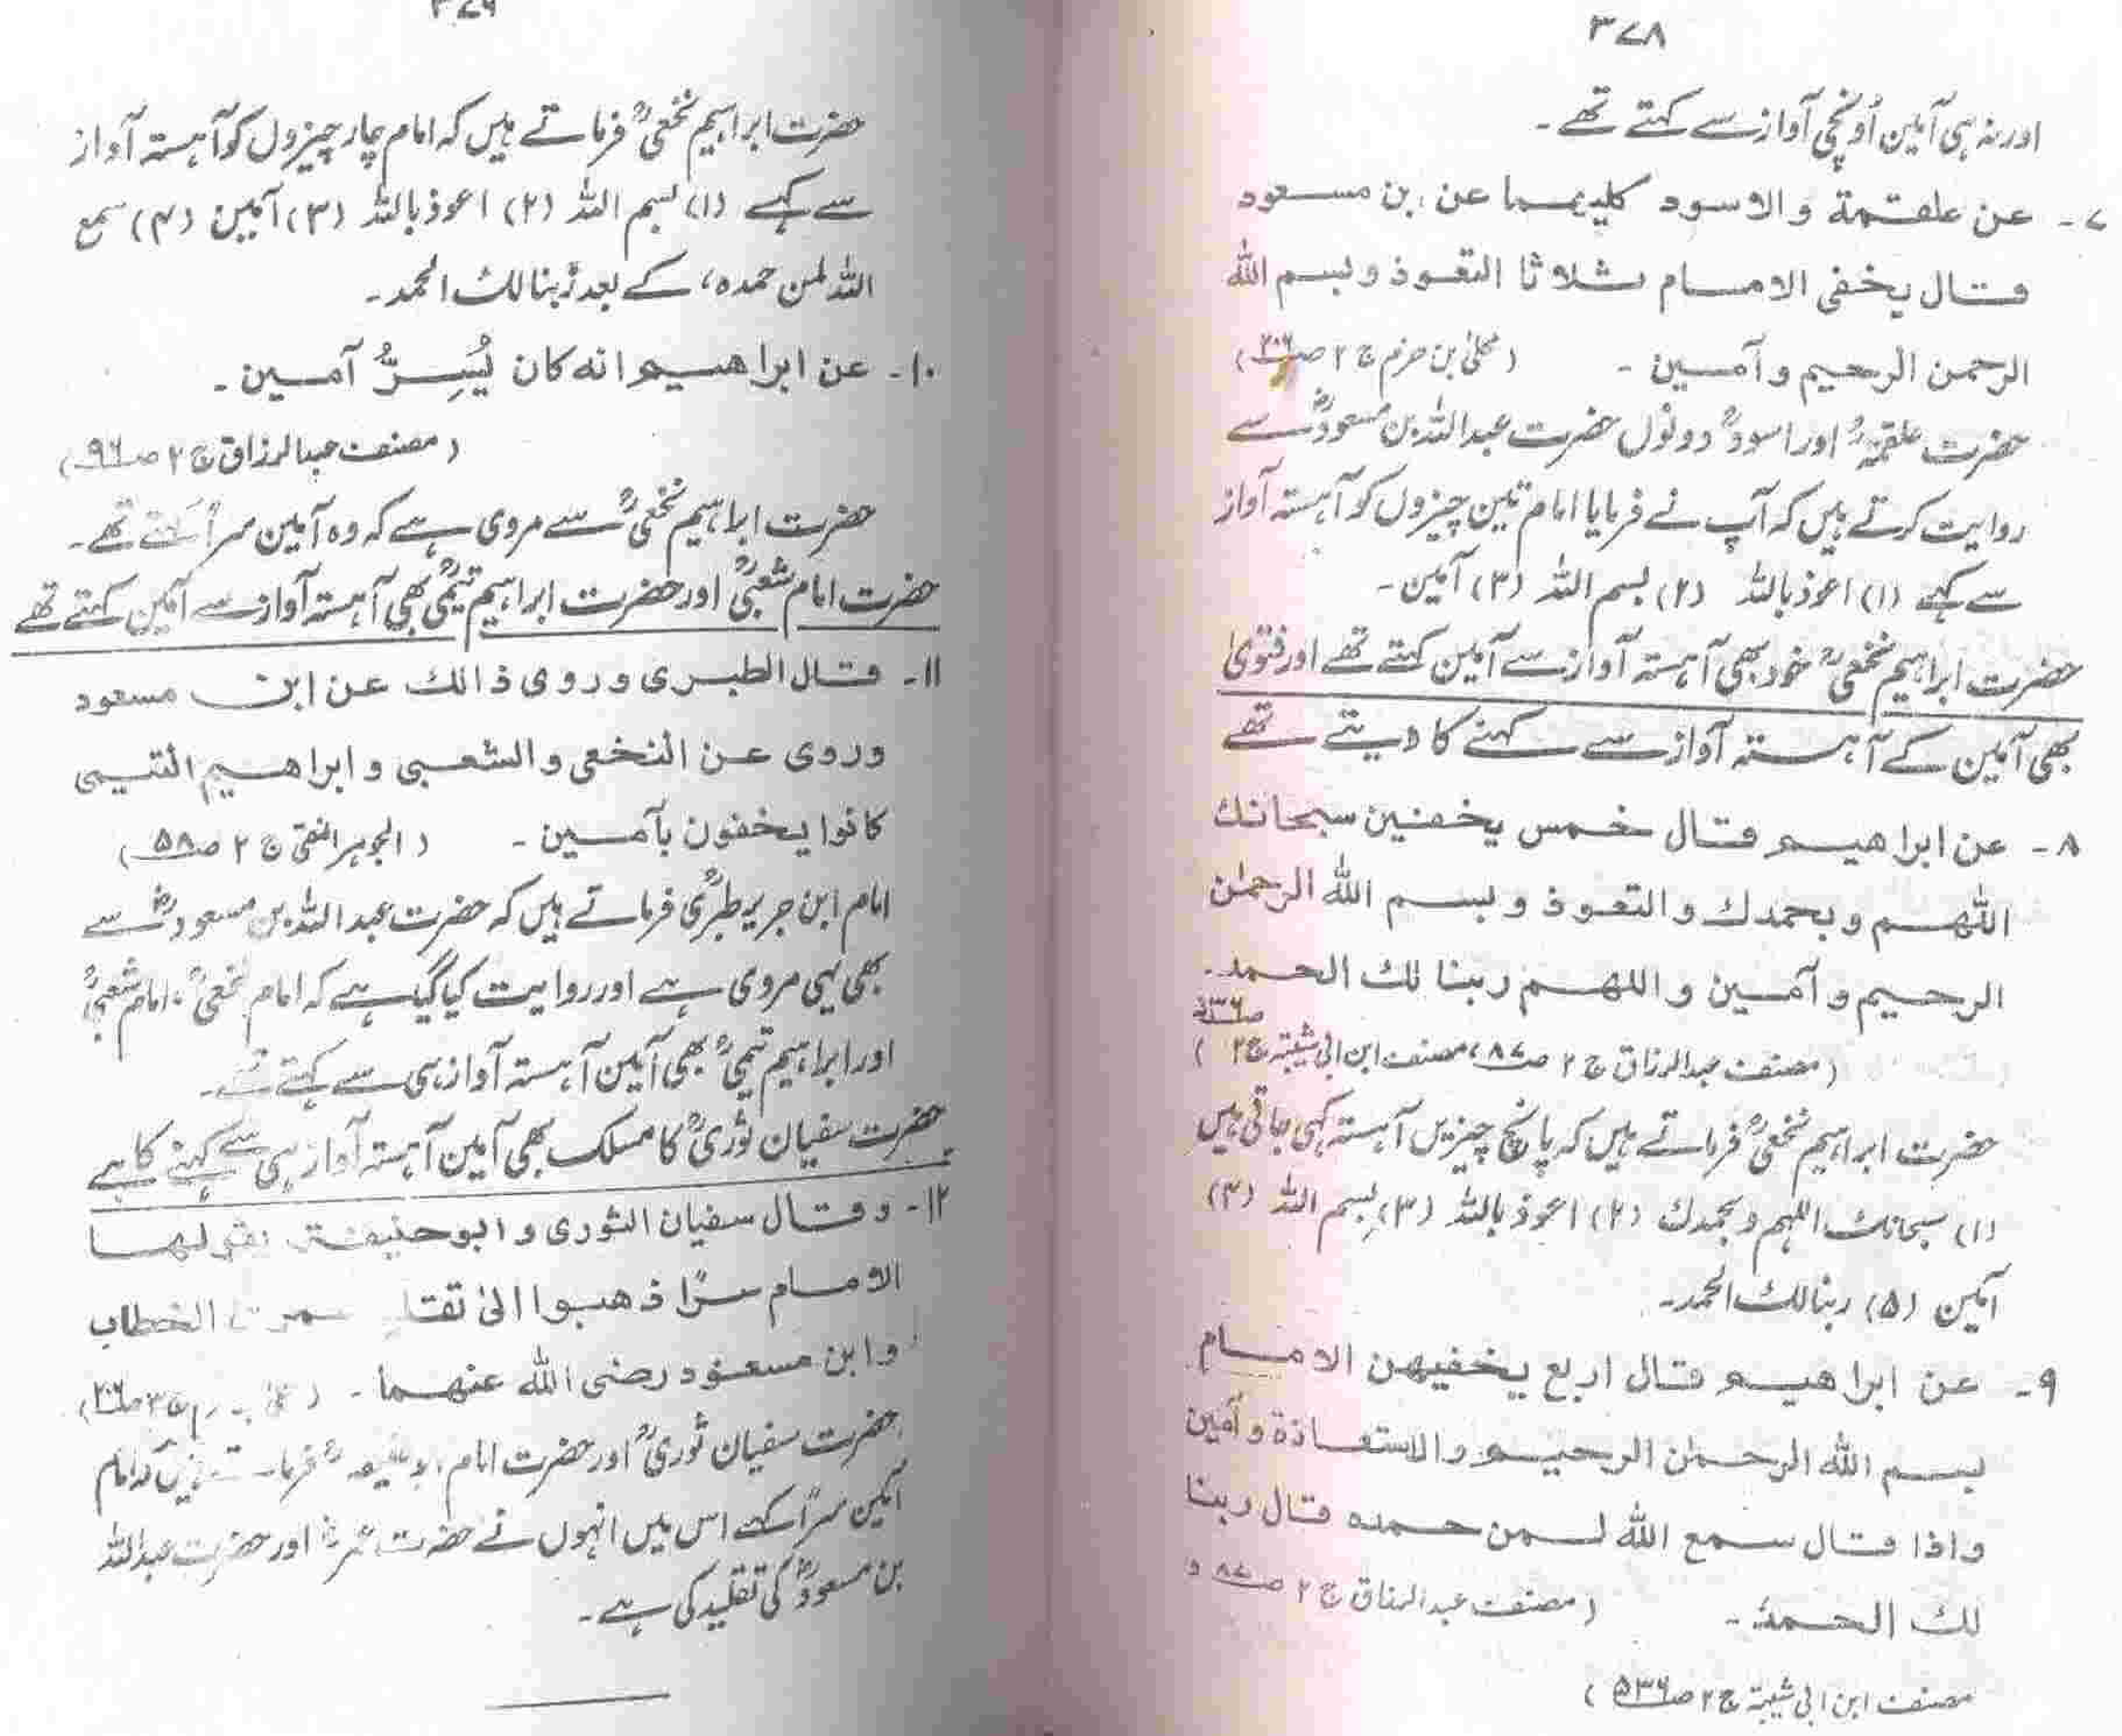 ۳۷۸
اور نہ ہی آمین اُونچی آواز سے کہتے تھے۔
۷۔ عن علقمة والاسود كليهما عن بن مسعود
قال يخفى الامام ثلاثا التعوذ وبسم الله
الرحمن الرحيم وآمين ۔ (محلیٰ بن حزم ج ۲ ص۲۰۶)
حضرت علقمہؒ اور اسودؒ دونوں حضرت عبداللہ بن مسعودؓ سے
روایت کرتے ہیں کہ آپ نے فرمایا امام تین چیزوں کو آہستہ آواز
سے کہے (۱) اعوذ باللہ (۲) بسم اللہ (۳) آمین۔
حضرت ابراہیم نخعیؒ خود بھی آہستہ آواز سے آمین کہتے تھے اور فتویٰ
بھی آمین کے آہستہ آواز سے کہنے کا دیتے تھے
۸۔ عن ابراهيم قال خمس يخفين سبحانك
اللهم وبحمدك والتعوذ وبسم الله الرحمٰن
الرحيم وآمين واللهم ربنا لك الحمد۔
(مصنف عبدالرزاق ج ۲ ص۸۷، مصنف ابن ابی شیبۃ ج ۲ ص۵۳۶)
حضرت ابراہیم نخعیؒ فرماتے ہیں کہ پانچ چیزیں آہستہ کہی جاتی ہیں
(۱) سبحانک اللہم وبحمدک (۲) اعوذ باللہ (۳) بسم اللہ (۴)
آمین (۵) ربنا لک الحمد۔
۹۔ عن ابراهيم قال اربع يخفيهن الامام
بسم الله الرحمٰن الرحيم والاستعاذة وآمين
واذا قال سمع الله لمن حمده قال ربنا
لك الحمد ۔ (مصنف عبدالرزاق ج ۲ ص۸۷ و
مصنف ابن ابی شیبۃ ج ۲ ص۵۳۶)
۳۷۹
حضرت ابراہیم نخعیؒ فرماتے ہیں کہ امام چار چیزوں کو آہستہ آواز
سے کہے (۱) بسم اللہ (۲) اعوذ باللہ (۳) آمین (۴) سمع
اللہ لمن حمدہ، کے بعد ربنا لک الحمد۔
۱۰۔ عن ابراهيم انه كان يُسِرُّ آمين ۔
(مصنف عبدالرزاق ج ۲ ص۹۶)
حضرت ابراہیم نخعیؒ سے مروی ہے کہ وہ آمین سراً کہتے تھے۔
حضرت امام شعبیؒ اور حضرت ابراہیم تیمیؒ بھی آہستہ آواز سے آمین کہتے تھے
۱۱۔ قال الطبرى وروى ذالك عن ابن مسعود
وروى عن النخعى والشعبى وابراهيم التيمى
كانوا يخفون بآمين ۔ (الجوہر النقی ج ۲ ص۵۸)
امام ابن جریر طبریؒ فرماتے ہیں کہ حضرت عبداللہ بن مسعودؓ سے
بھی یہی مروی ہے اور روایت کیا گیا ہے کہ امام نخعیؒ، امام شعبیؒ
اور ابراہیم تیمیؒ بھی آمین آہستہ آواز ہی سے کہتے تھے۔
حضرت سفیان ثوریؒ کا مسلک بھی آمین آہستہ آواز ہی سے کہنے کا ہے
۱۲۔ وقال سفيان الثورى وابوحنيفة يقولها
الامام سرًا ذهبوا الىٰ تقليد الخطاب
وابن مسعود رضى الله عنهما ۔ ( ص۲۰۶)
حضرت سفیان ثوریؒ اور حضرت امام فرماتے ہیں کہ امام
آمین سراً کہے اس میں انہوں نے حضرت عمرؓ اور حضرت عبداللہ
بن مسعودؓ کی تقلید کی ہے۔